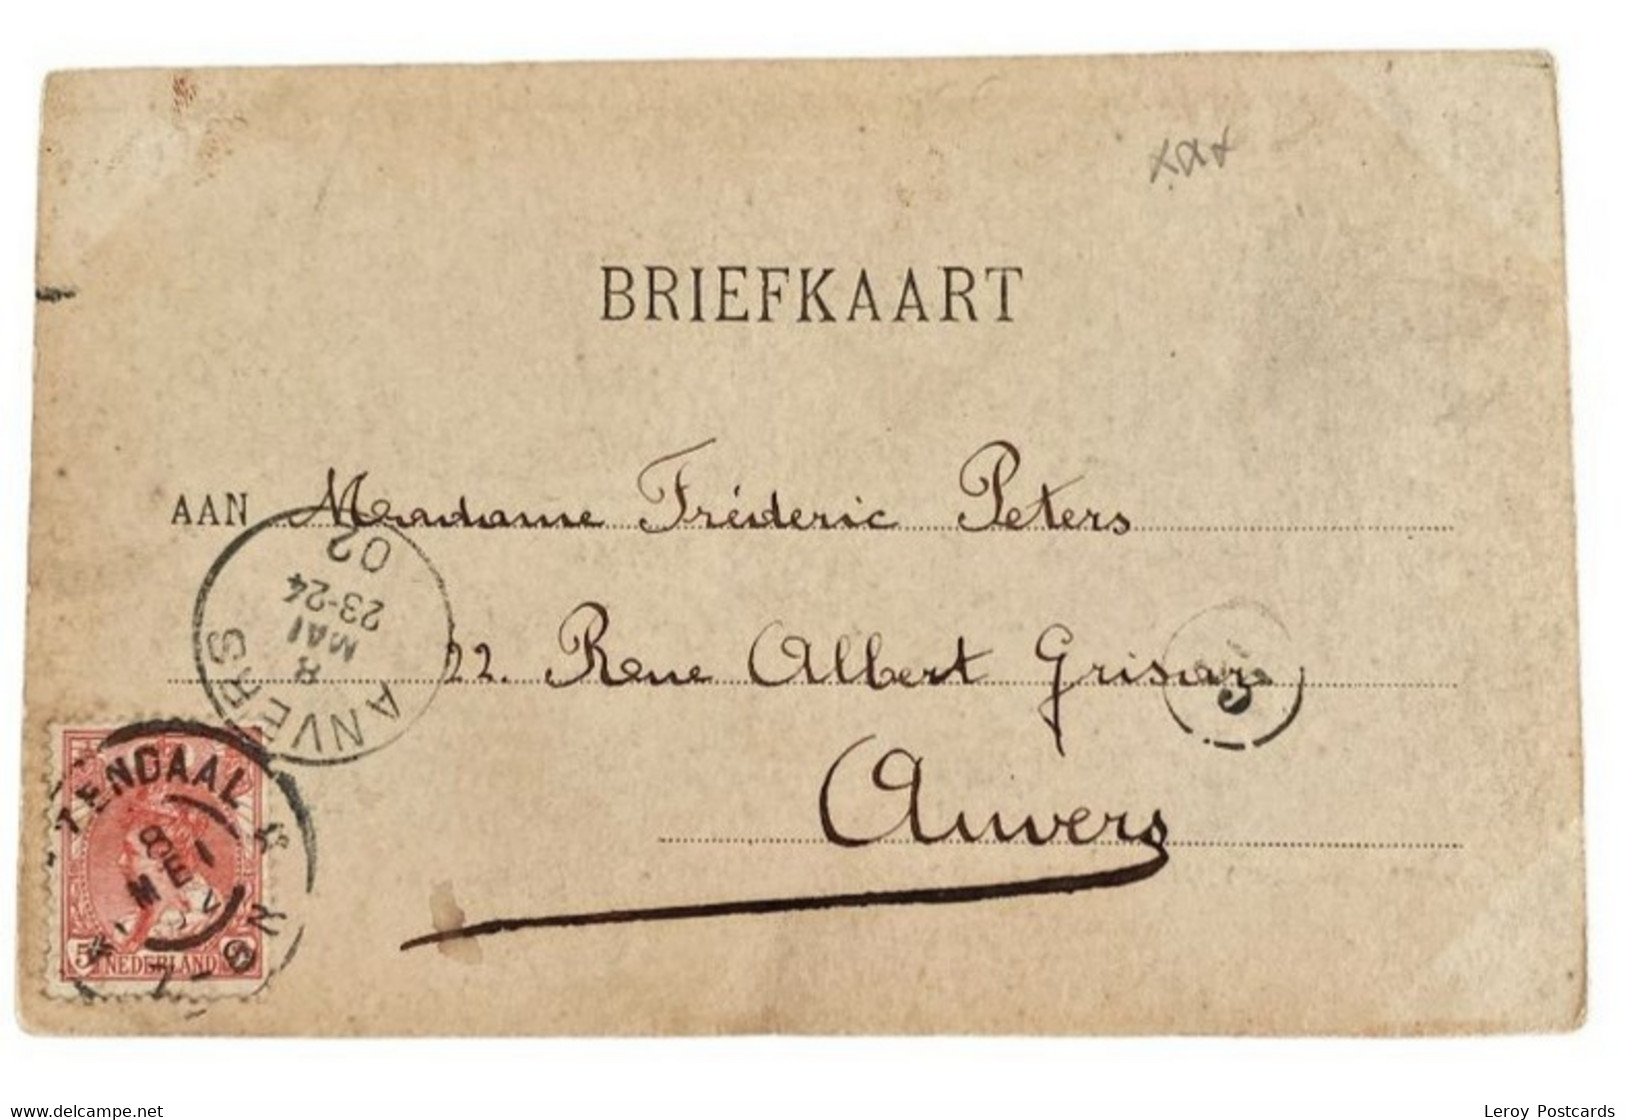 BRIEFKAART
AAN Madame Fréderic Peters
22. Rue Albert Grisar
Anvers
ANVERS
8
MAI
23-24
02
5
TENDAAL
8 MEI
5
NEDERLAND
www.delcampe.net
Leroy Postcards